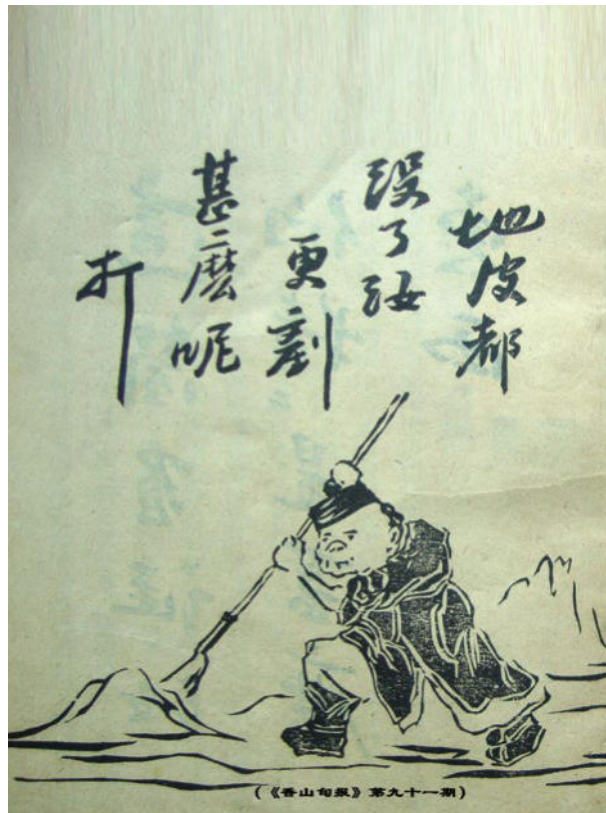 地皮都
没了汝
更剷
甚麼呢
打
(《香山旬报》第九十一期)